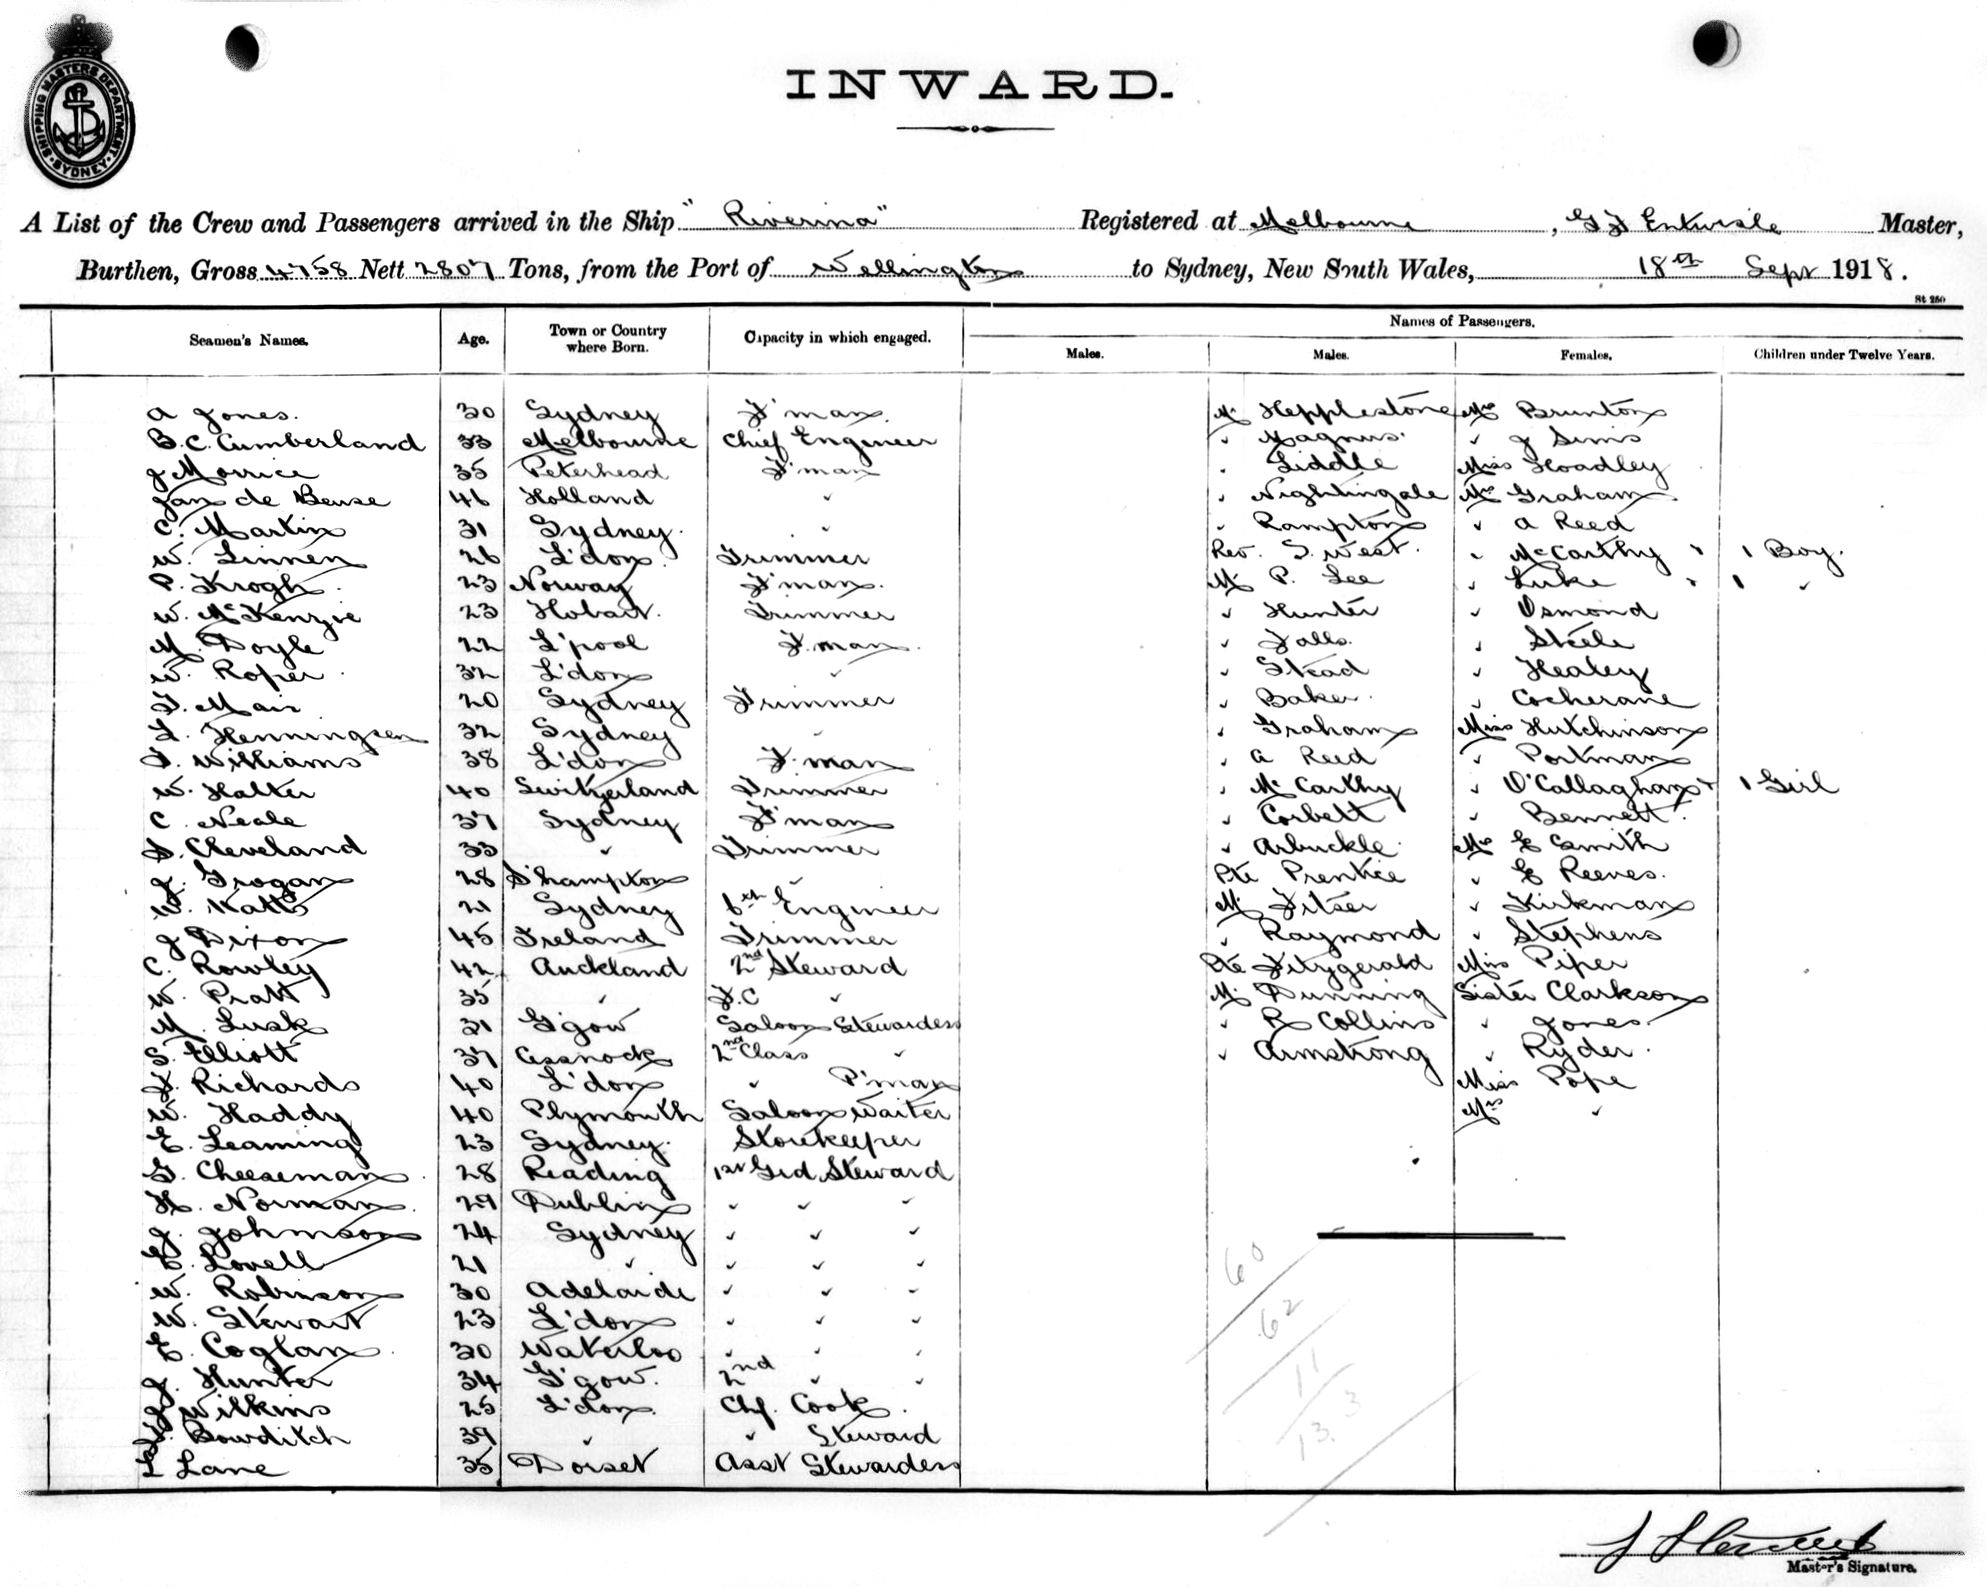 SHIPPING MASTERS DEPARTMENT
SYDNEY
INWARD.
A List of the Crew and Passengers arrived in the Ship "Riverina" Registered at Melbourne, Master,
Burthen, Gross 4758 Nett 2807 Tons, from the Port of Wellington to Sydney, New South Wales, 18th Sept 1918.
St 250
Seamen's Names. Age. Town or Country where Born. Capacity in which engaged. Names of Passengers.
Males. Males. Females. Children under Twelve Years.
A Jones. 30 Sydney F'man. Mr Hepplestone Mrs Brunton
B.C. Cumberland 33 Melbourne Chief Engineer " Magnus. " J Sims
J Morrice 35 Peterhead F'man " Liddle Miss Hoadley
Jan de Beuse 46 Holland " " Nightingale Mrs Graham
C. Martin 31 Sydney. " " Rampton " A Reed
W. Linnen 26 L'don. Trimmer Rev. S. West. " McCarthy " 1 Boy.
P. Krogh. 23 Norway F'man. Mr P. Lee " Luke " 1 "
W. McKenzie 23 Hobart. Trimmer " Hunter " Osmond
M. Doyle 22 L'pool F.man. " Falls. " Steele
W. Roper 32 L'don " " Stead " Healey
F. Mair 20 Sydney Trimmer " Baker " Cocherane
L. Henningsen 32 Sydney " " Graham Miss Hutchinson
F. Williams 38 L'don F.man " A Reed " Portman
W. Halter 40 Switzerland Trimmer " McCarthy " O'Callaghan + 1 Girl
C Neale 37 Sydney F'man " Corbett " Bennett.
S. Cleveland 33 " Trimmer " Arbuckle Mrs E Smith
J. Grogan 28 S'hampton " Pte Prentice " E Reeves.
W. Watts 21 Sydney 6th Engineer Mr Fitser " Kirkman
J Dixon 45 Ireland Trimmer " Raymond " Stephens
C. Rowley 42 Auckland 2nd Steward Pte Fitzgerald Miss Piper
W. Pratt 35 " F.C " Mr Dunning Sister Clarkson
M. Lusk 31 G'gow Saloon Stewardess " R Collins " Jones
S. Elliott 37 Cessnock 2nd Class " " Armstrong " Ryder.
F. Richards 40 L'don " P'man Miss Pope
W. Haddy 40 Plymouth Saloon Waiter Mrs "
E. Leaming 23 Sydney. Storekeeper
G. Cheeseman 28 Reading 1st Grd Steward
H. Norman. 29 Dublin " " "
J. Johnson 24 Sydney " " "
E. Lovell 21 " " " "
W. Robinson 30 Adelaide " " "
W. Stewart 23 L'don " " "
E. Coglan 30 Waterloo " " "
J. Hunter 34 G'gow. 2nd " "
J Wilkins 25 L'don. Chf. Cook.
F. Bowditch 39 " " Steward
L Lane 35 Dorset Asst Stewardess
60
62
11
133
Master's Signature.